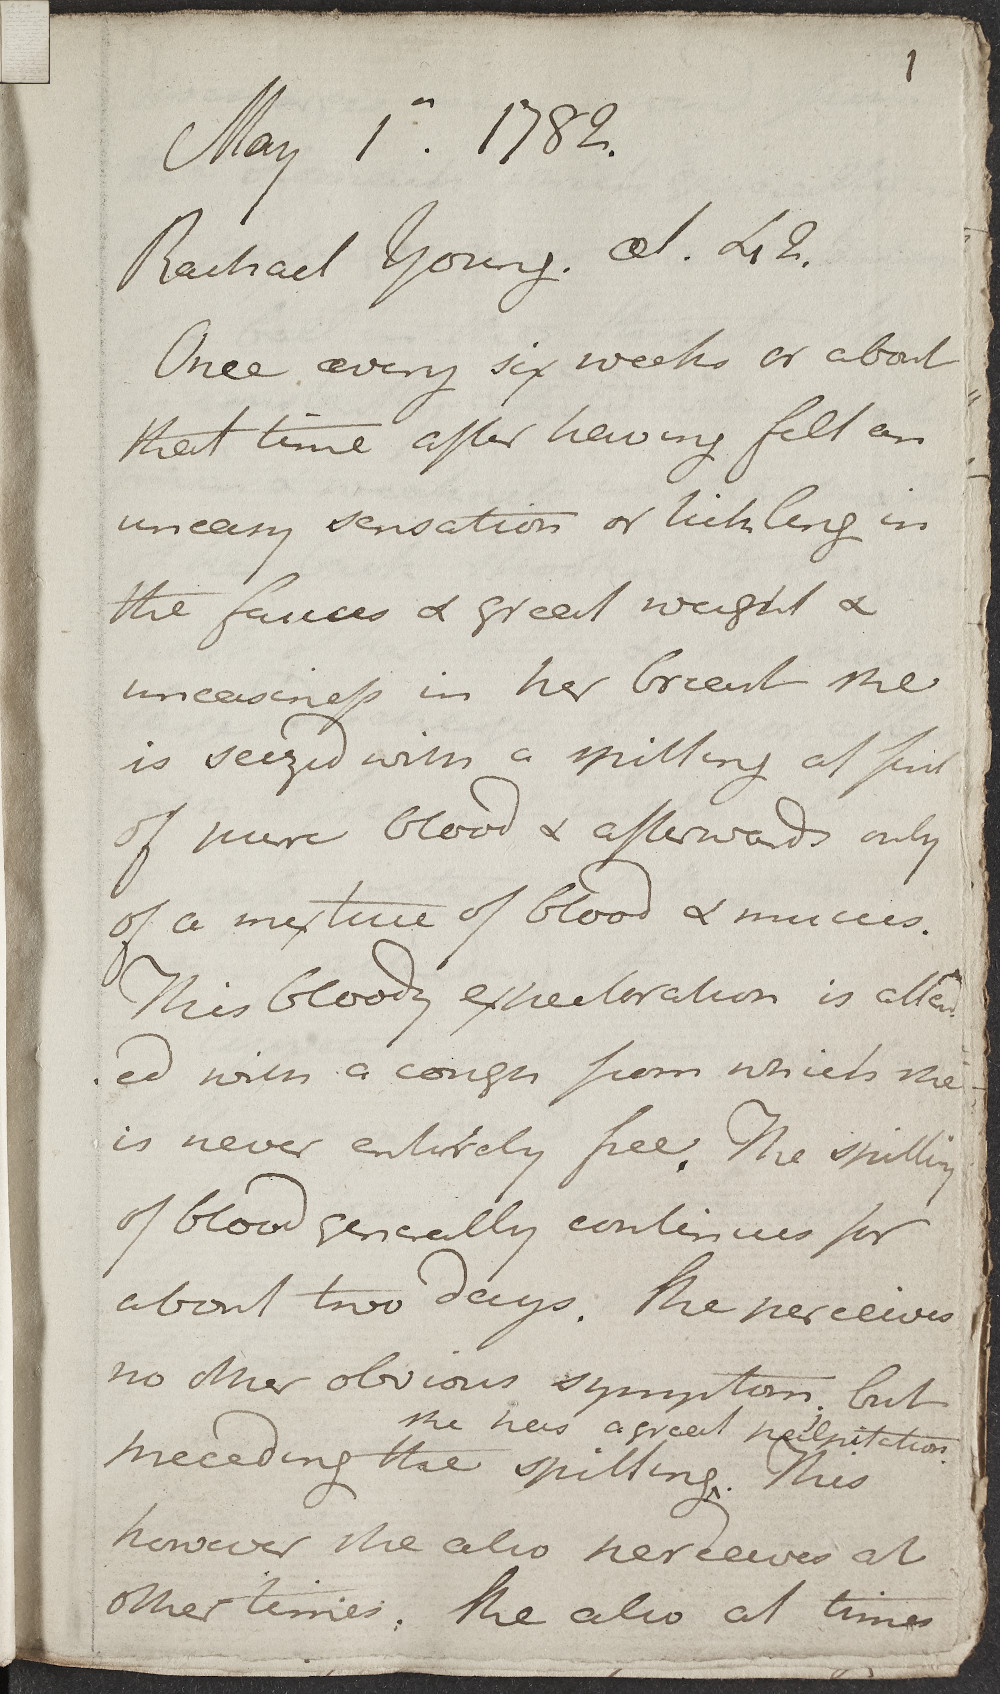 1
May 1st. 1782.
Rachael Young. æt. 42.
Once every six weeks or about
that time after having felt an
uneasy sensation or tickling in
the fauces & great weight &
uneasiness in her breast she
is seized with a spitting at first
of pure blood & afterwards only
of a mixture of blood & mucus.
This bloody expectoration is attend
ed with a cough from which she
is never entirely free. The spitting
of blood generally continues for
about two days. She perceives
no other obvious symptom, but
she has a great palpitation.
preceding the spitting. This
however she also perceives at
other times. She also at times